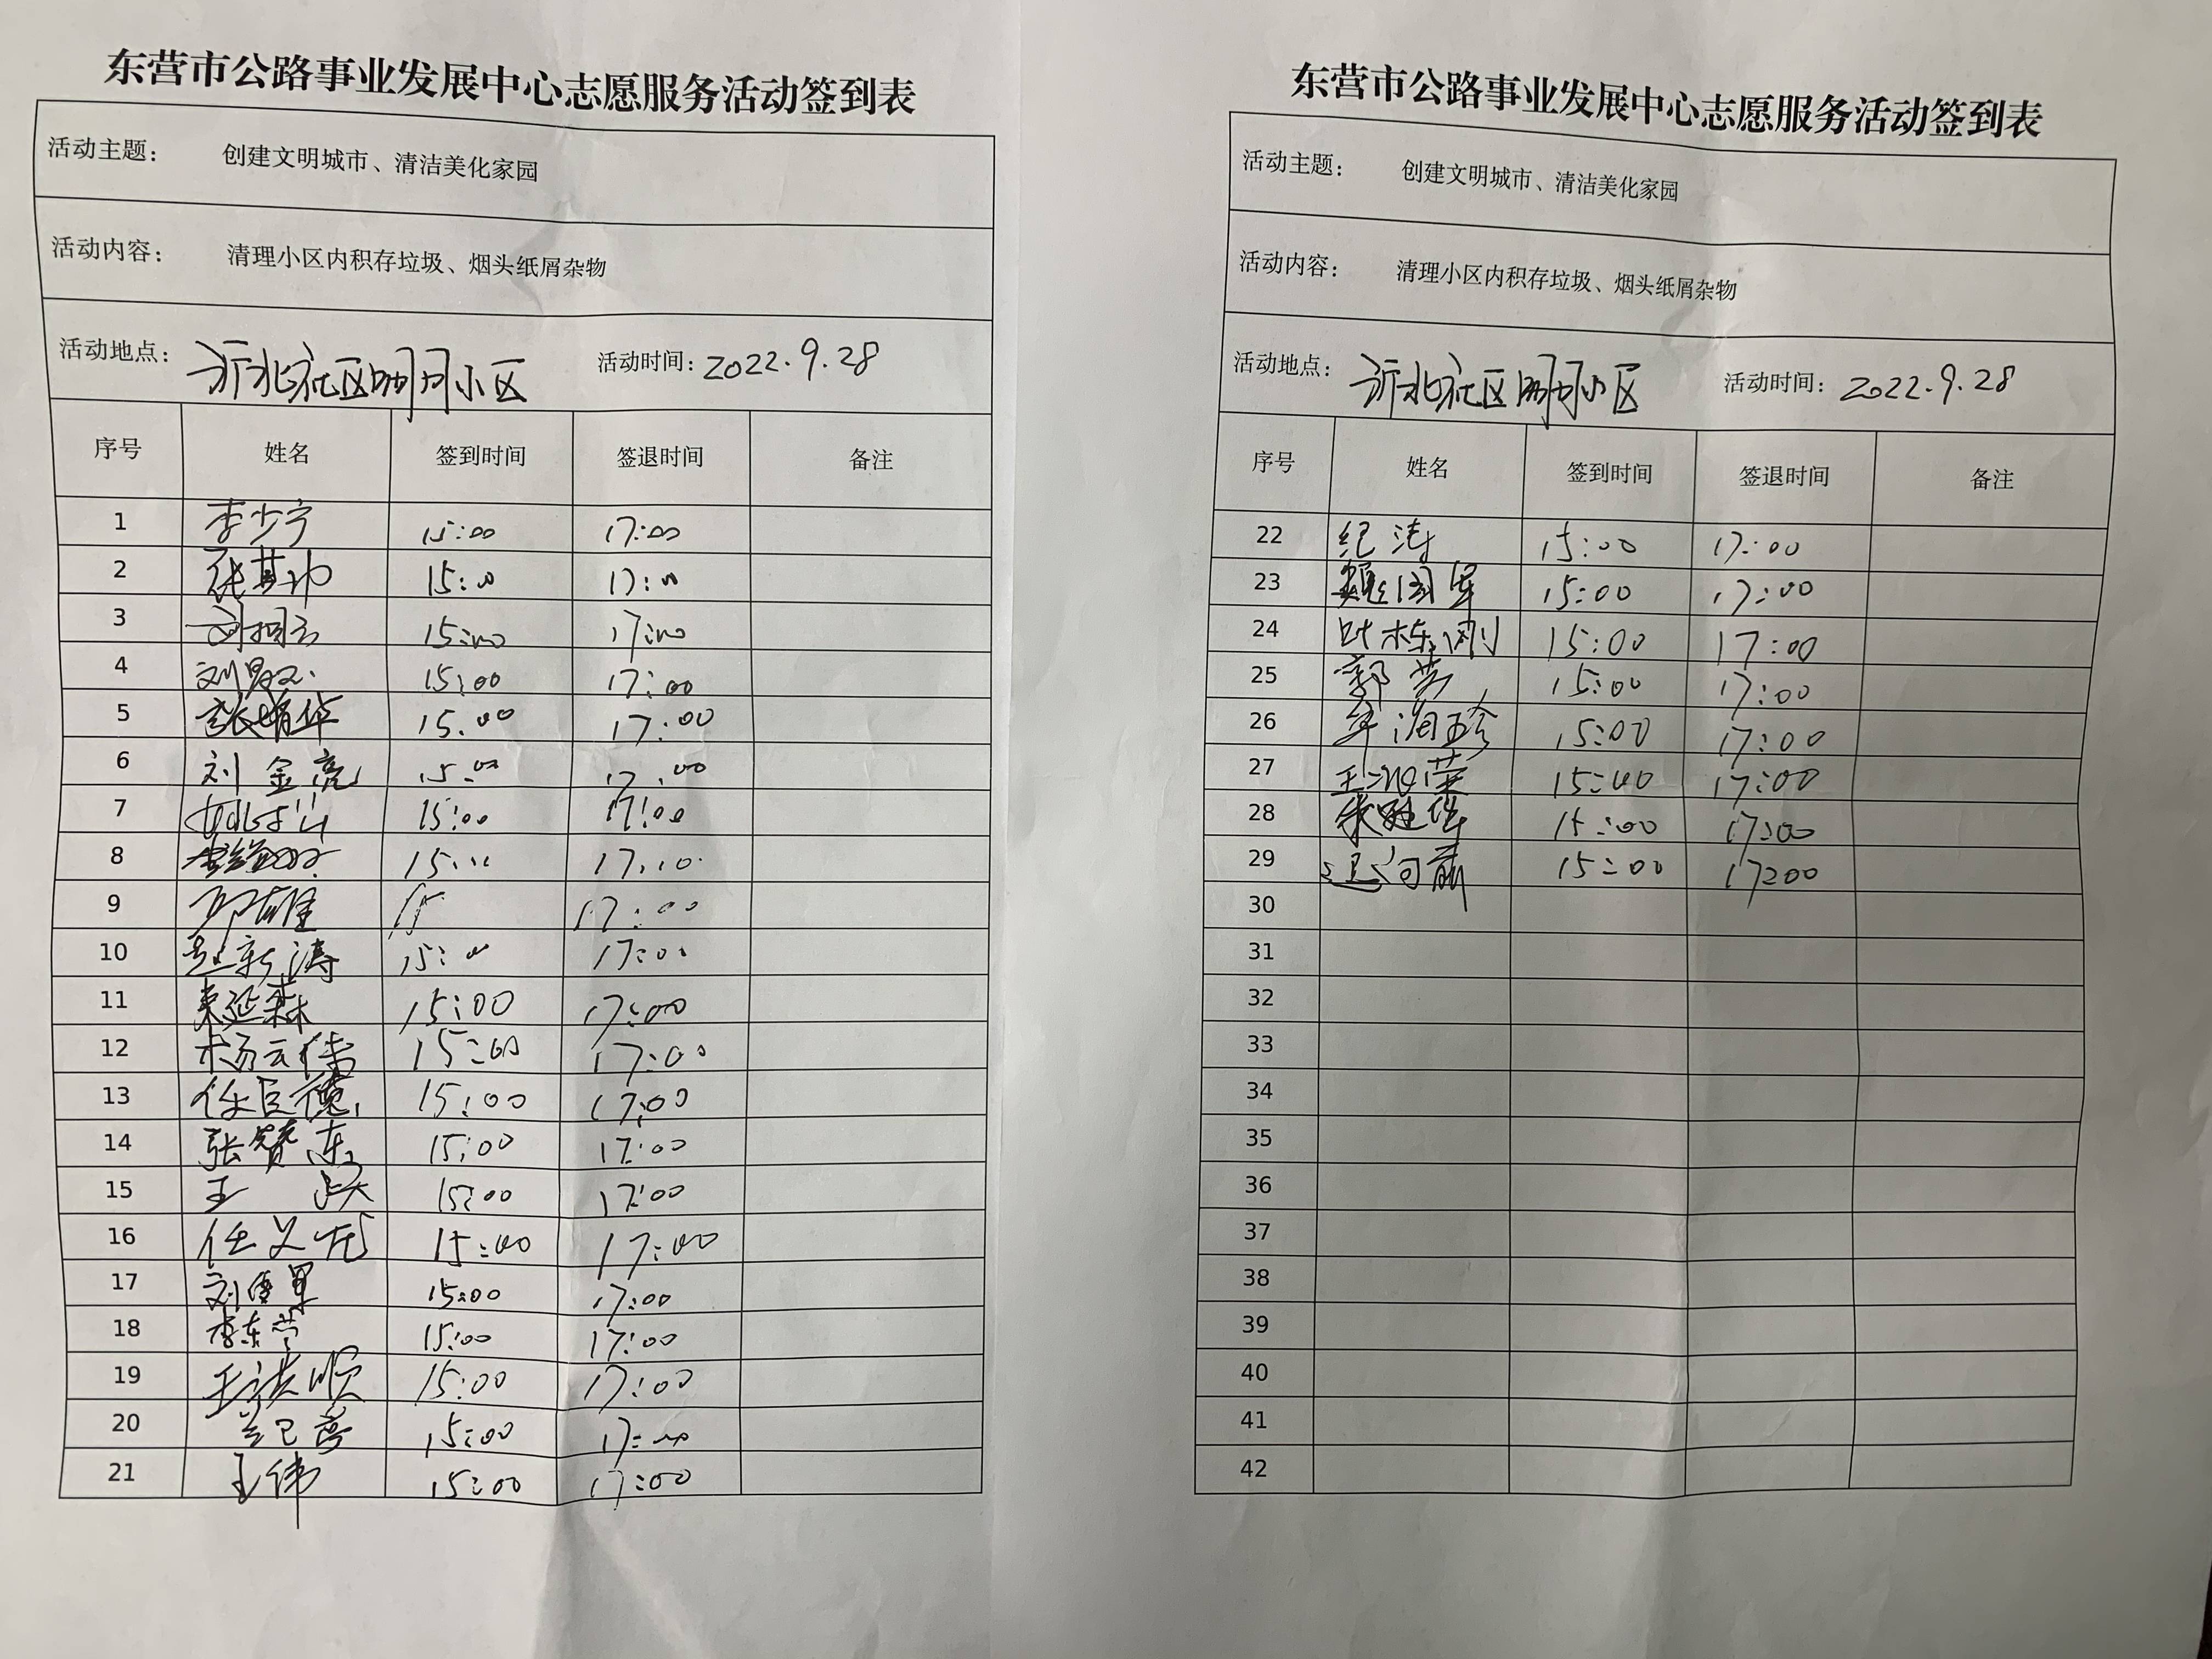 东营市公路事业发展中心志愿服务活动签到表
活动主题： 创建文明城市、清洁美化家园
活动内容： 清理小区内积存垃圾、烟头纸屑杂物
活动地点： 沂北社区明月小区 活动时间：2022.9.28
序号 姓名 签到时间 签退时间 备注
1 李少宁 15:00 17:00
2 15:00 17:00
3 15:00 17:00
4 15:00 17:00
5 张婧华 15:00 17:00
6 刘金亮 15:00 17:00
7 15:00 17:00
8
9 15 17:00
10 赵新涛 15:00 17:00
11 束延森 15:00 17:00
12 杨云伟 15:00 17:00
13 任巨德 15:00 17:00
14 张赞东 15:00 17:00
15 王跃 15:00 17:00
16 任义龙 15:00 17:00
17 15:00 17:00
18 李东营 15:00 17:00
19 王洪顺 15:00 17:00
20 15:00 17:00
21 王伟 15:00 17:00
东营市公路事业发展中心志愿服务活动签到表
活动主题： 创建文明城市、清洁美化家园
活动内容： 清理小区内积存垃圾、烟头纸屑杂物
活动地点： 沂北社区明月小区 活动时间：2022.9.28
序号 姓名 签到时间 签退时间 备注
22 纪涛 15:00 17:00
23 魏国军 15:00 17:00
24 叶栋刚 15:00 17:00
25 郭芳 15:00 17:00
26 15:00 17:00
27 15:00 17:00
28 15:00 17:00
29 15:00 17:00
30
31
32
33
34
35
36
37
38
39
40
41
42